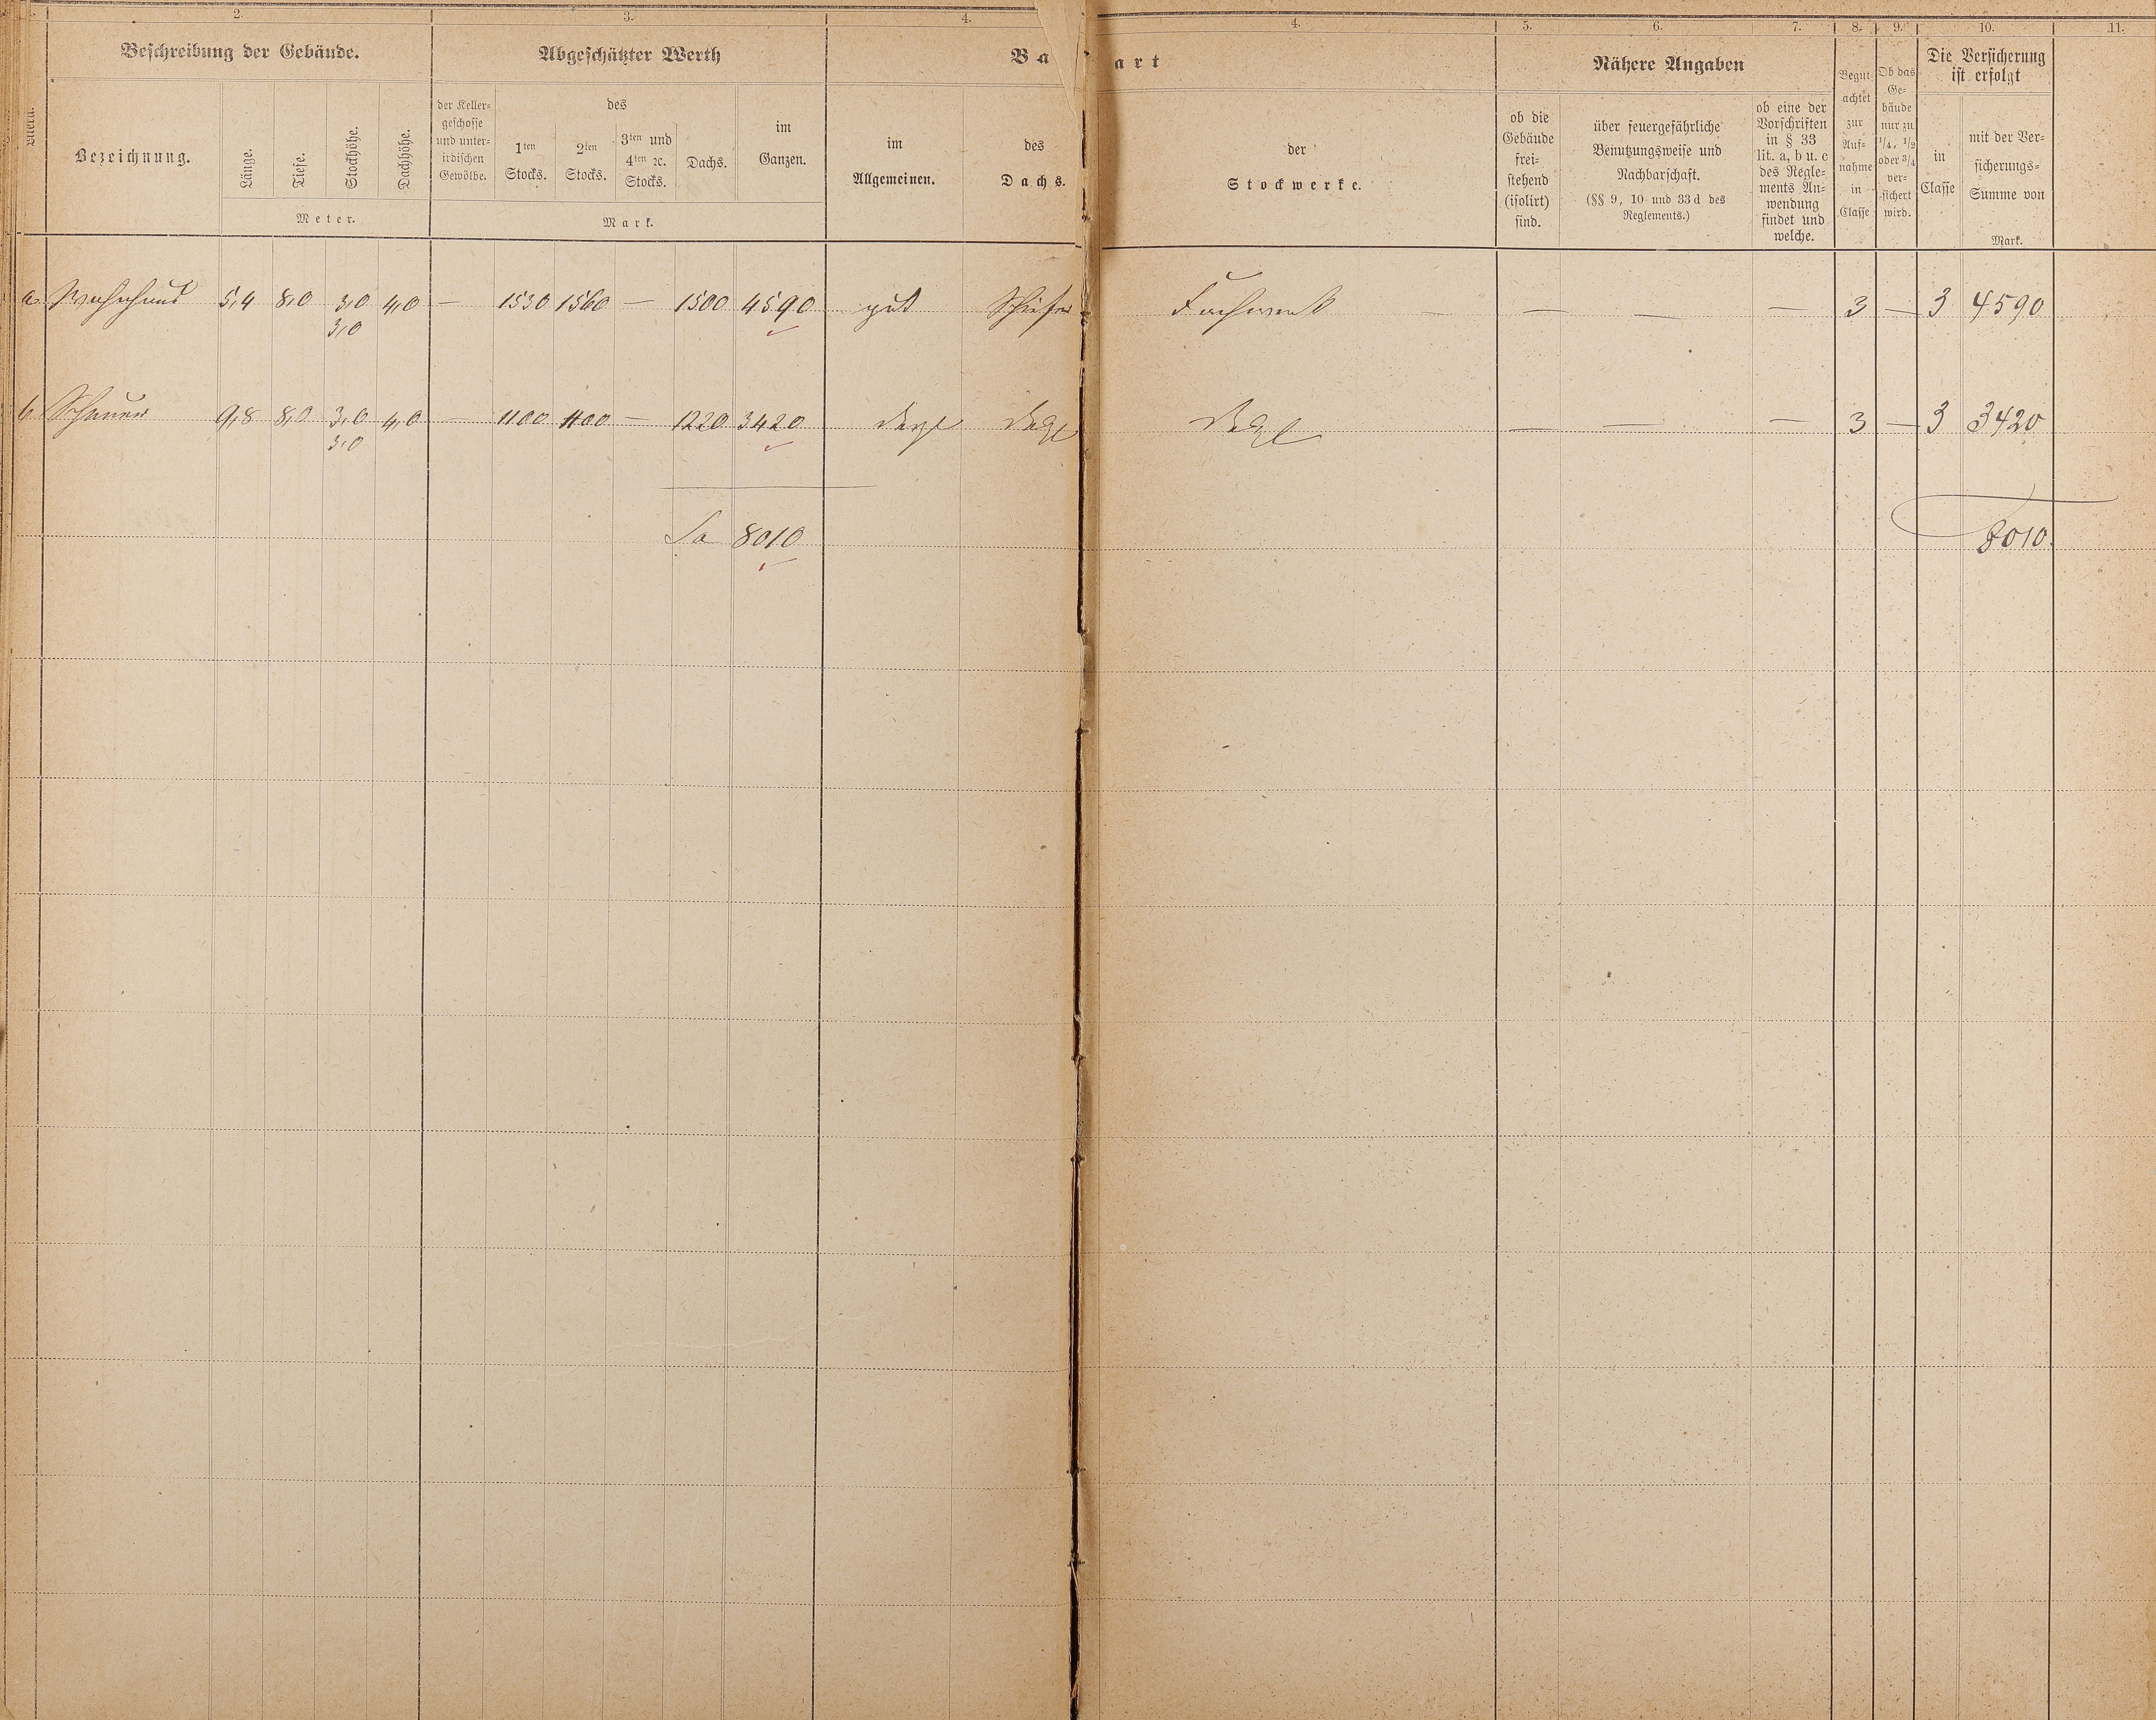 2. 3. 4. 4. 5. 6. 7. 8. 9. 10. 11.
Beschreibung der Gebäude. Abgeschätzter Werth Ba art Nähere Angaben Die Versicherung
ist erfolgt
Bezeichnung.
Länge.
Tiefe.
Stockhöhe.
Dachhöhe.
Meter.
der Keller-
geschosse
und unter-
irdischen
Gewölbe.
des
1ten
Stocks.
2ten
Stocks.
3ten und
4ten ꝛc.
Stocks.
Dachs.
im
Ganzen.
Mark.
im
Allgemeinen.
des
Dachs.
der
Stockwerke.
ob die
Gebäude
frei-
stehend
(isolirt)
sind.
über feuergefährliche
Benutzungsweise und
Nachbarschaft.
(§§ 9, 10 und 33 d des
Reglements.)
ob eine der
Vorschriften
in § 33
lit. a, b u. c
des Regle-
ments An-
wendung
findet und
welche.
Begut-
achtet
zur
Auf-
nahme
in
Classe
Ob das
Ge-
bäude
nur zu
1/4, 1/2
oder 3/4
ver-
sichert
wird.
in
Classe
mit der Ver-
sicherungs-
Summe von
Mark.
a Wohnhaus 5,4 8,0 3,0 4,0 — 1530 1560 — 1500 4590 gut Schiefer Fachwerk — — — — 3 — 3 4590
3,0
b Scheuer 9,8 8,0 3,0 4,0 — 1100 1100 — 1220 3420 desgl desgl desgl — — — 3 — 3 3420
3,0
Sa 8010 8010.